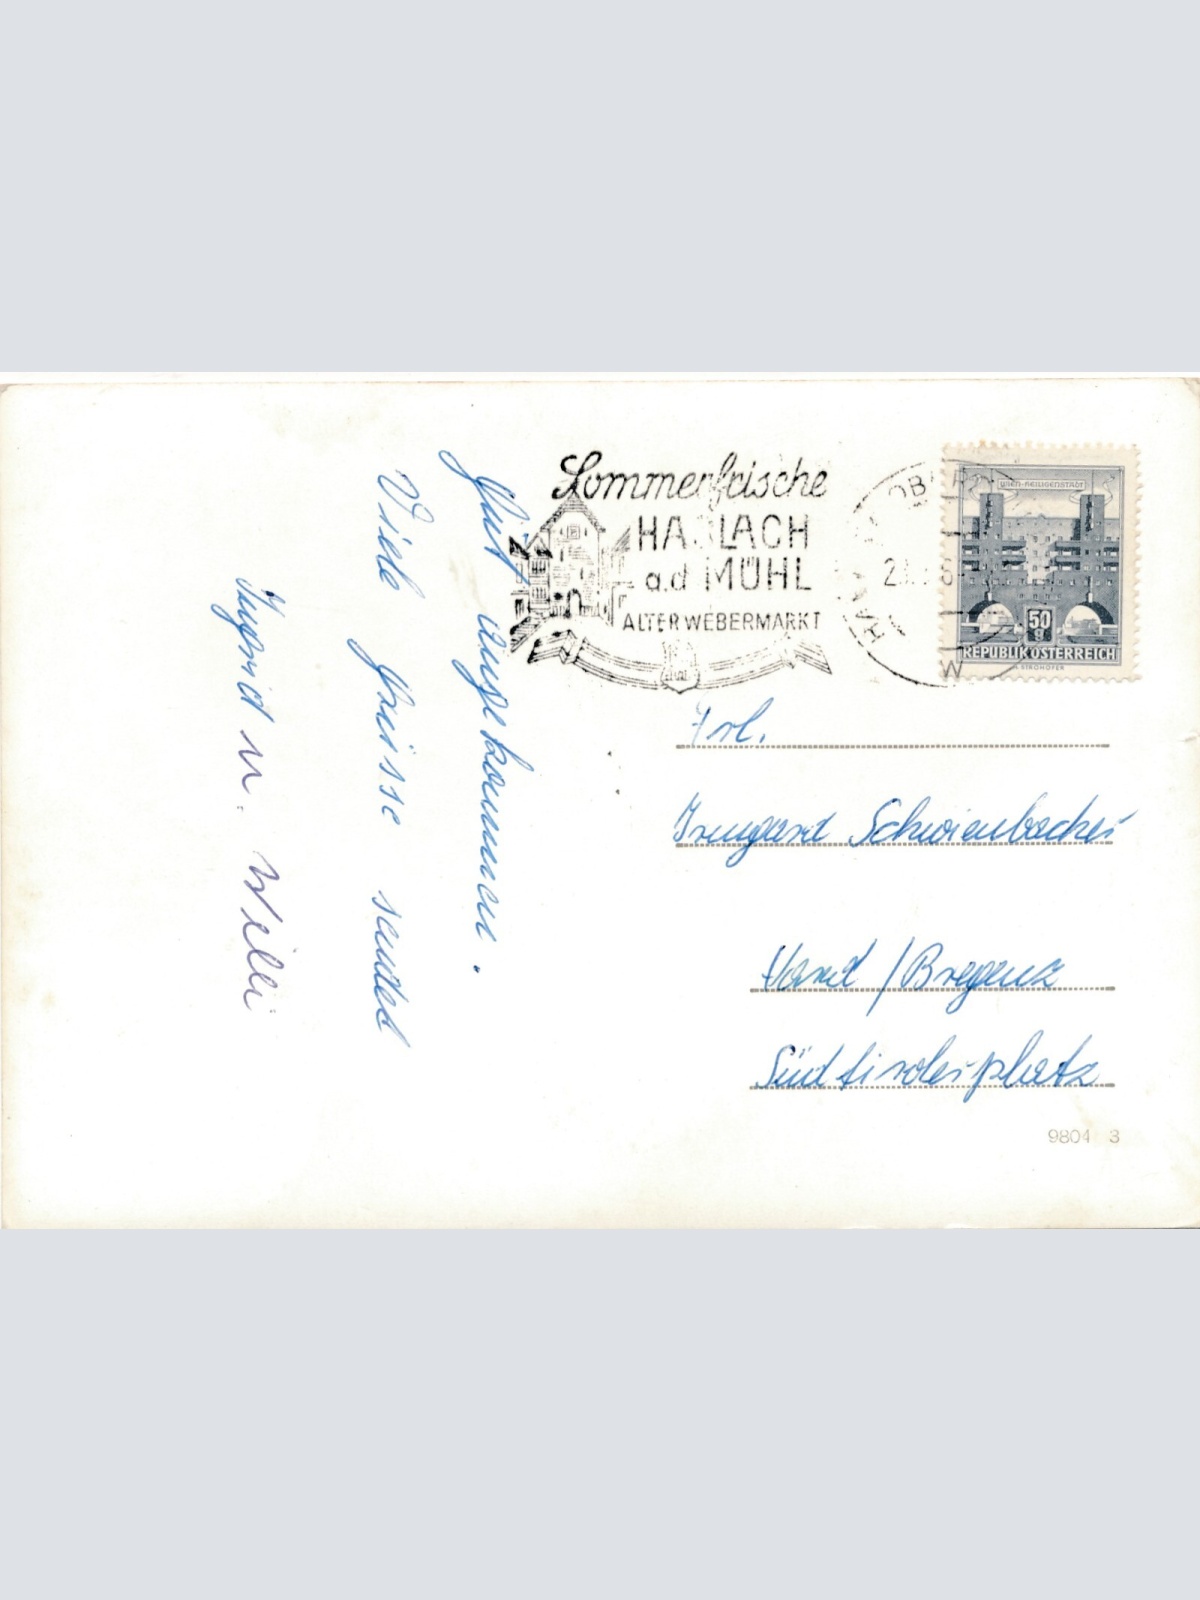 Gut angekommen.
Viele Grüsse sendet
Ingrid u. Willi
Sommerfrische
HASLACH
a.d MÜHL
ALTER WEBERMARKT
WIEN-HEILIGENSTADT
50
g
REPUBLIK ÖSTERREICH
Frl.
Irmgard Schwienbacher
Hard / Bregenz
Südtirolerplatz
9804 3